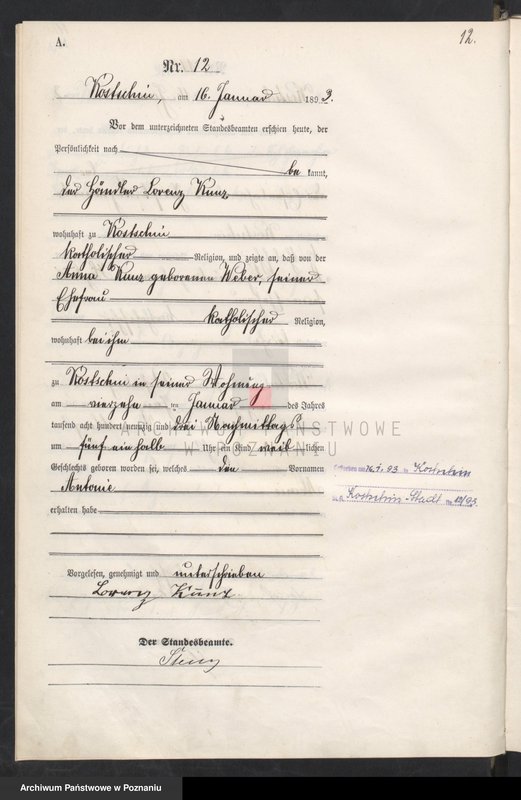 12.
A.
Nr. 12
Kostschin, am 16. Januar 1893.
Vor dem unterzeichneten Standesbeamten erschien heute, der
Persönlichkeit nach
be kannt,
der Händler Lorenz Kunz
wohnhaft zu Kostschin
katholischer Religion, und zeigte an, daß von der
Anna Kunz geborenen Weber, seiner
Ehefrau
katholischer Religion,
wohnhaft bei ihm
zu Kostschin in seiner Wohnung
am vierzehnten Januar des Jahres
tausend acht hundert neunzig und drei Nachmittags
um fünf ein halb Uhr ein Kind weiblichen
Geschlechts geboren worden sei, welches den Vornamen
Antonie
erhalten habe
Vorgelesen, genehmigt und unterschrieben
Lorenz Kunz
Der Standesbeamte.
93 in Kostschin
Kostschin Stadt Nr. /93.
ARCHIWUM PAŃSTWOWE
W POZNANIU
Archiwum Państwowe w Poznaniu